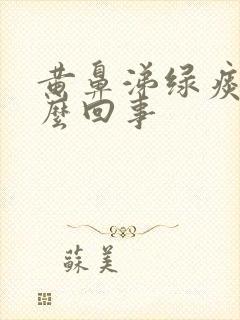 黄鼻涕绿痰
麼回事
蘇美